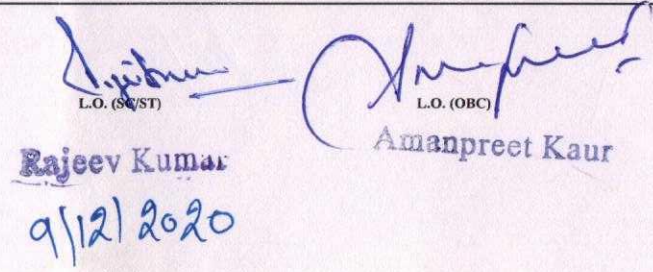 L.O. (SC/ST) L.O. (OBC)
Rajeev Kumar Amanpreet Kaur
9/12/2020